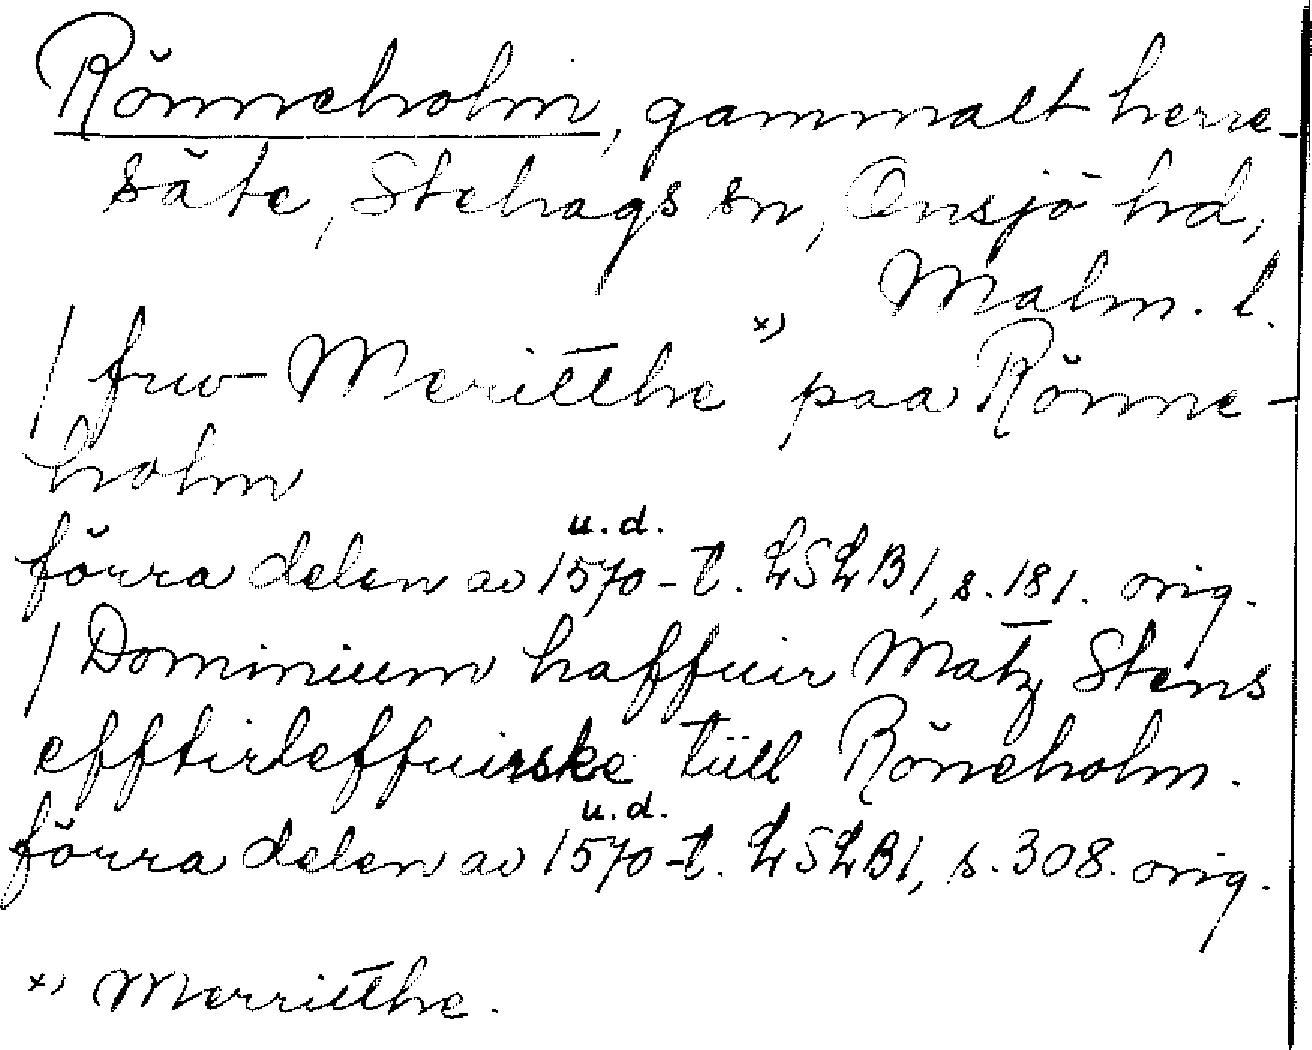 Rönneholm, gammalt herre-
säte, Stehags sn, Onsjö hd,
Malm. l.
/ frw Meritthe x) paa Rönne-
holm
förra delen av 1570-t. u.d. LSLB1, s. 181. orig.
/ Dominium haffuir Matz Stens
efftirleffuirske till Röneholm.
förra delen av 1570-t. u.d. LSLB1, s. 308. orig.
x) Merritthe.